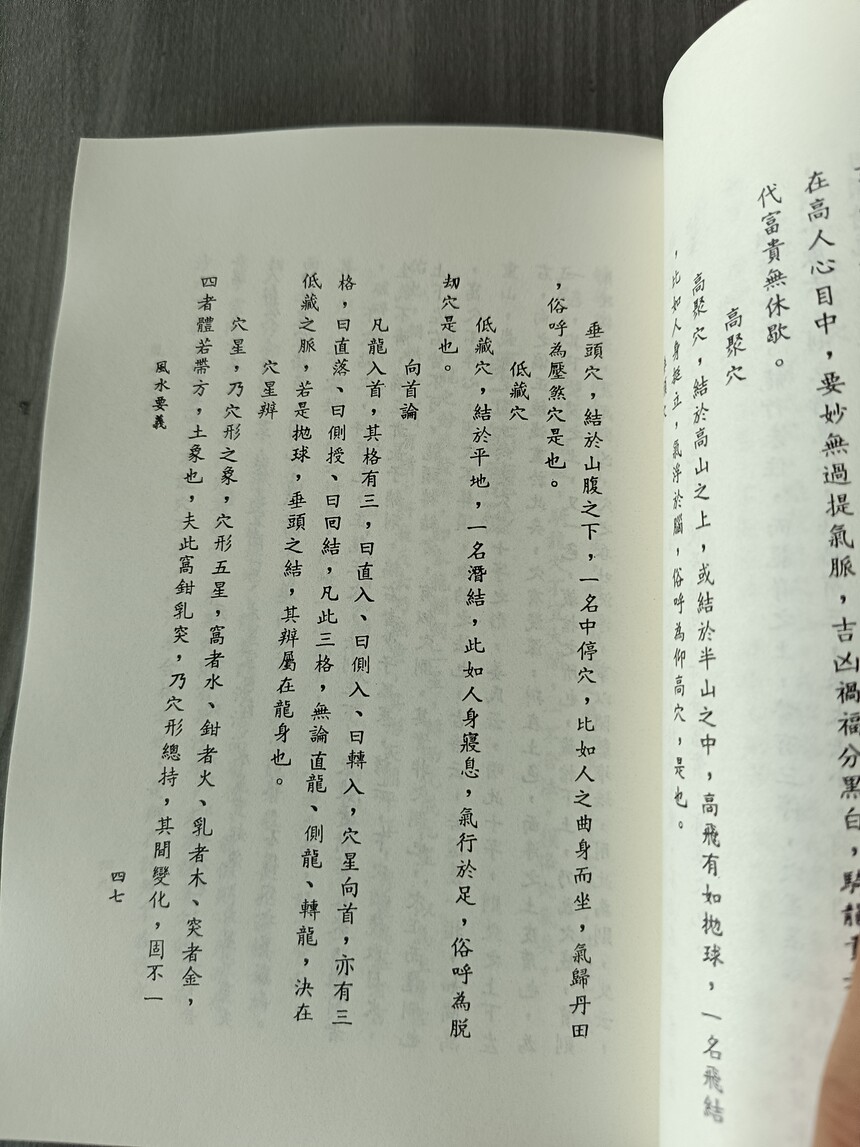 在高人心目中，要妙無過提氣脈，吉凶禍福分黑白，
代富貴無休歇。
高聚穴
高聚穴，結於高山之上，或結於半山之中，高飛有如拋球，一名飛結
，比如人身挺立，氣浮於腦，俗呼為仰高穴，是也。
垂頭穴，結於山腹之下，一名中停穴，比如人之曲身而坐，氣歸丹田
，俗呼為壓煞穴是也。
低藏穴
低藏穴，結於平地，一名潛結，此如人身寢息，氣行於足，俗呼為脱
劫穴是也。
向首論
凡龍入首，其格有三，曰直入、曰側入、曰轉入，穴星向首，亦有三
格，曰直落、曰側授、曰回結，凡此三格，無論直龍、側龍、轉龍，決在
低藏之脈，若是拋球，垂頭之結，其辨屬在龍身也。
穴星辨
穴星，乃穴形之象，穴形五星，窩者水、鉗者火、乳者木、突者金，
四者體若帶方，土象也，夫此窩鉗乳突，乃穴形總持，其間變化，固不一
風水要義
四七